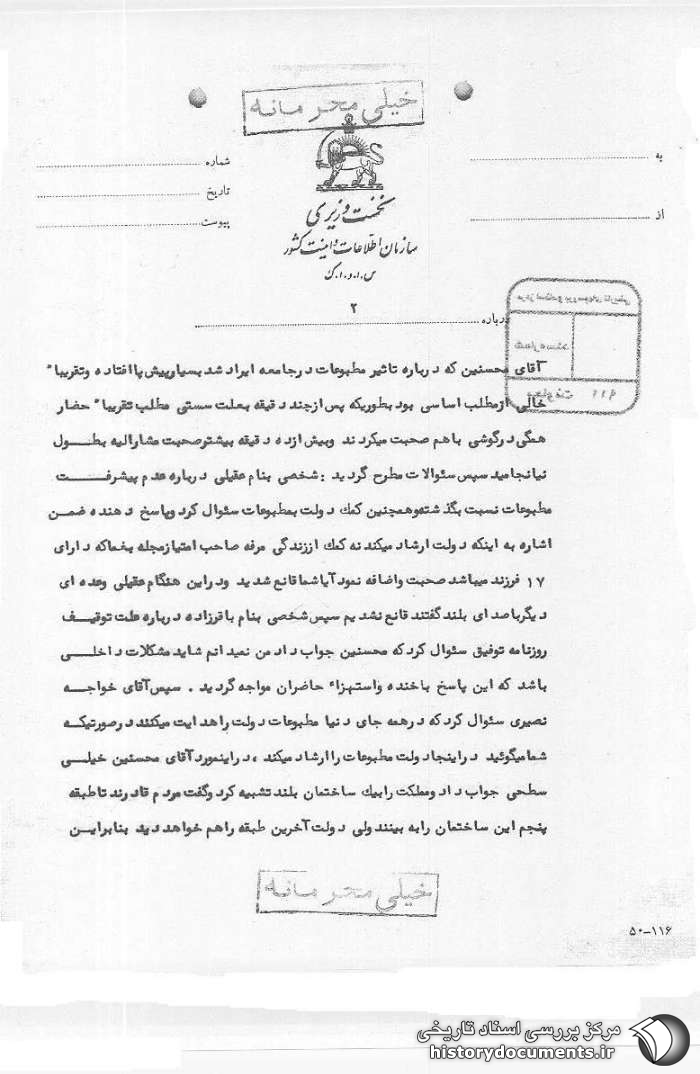 خیلی محرمانه
به
شماره
تاریخ
از
پیوست
نخست وزیری
سازمان اطلاعات و امنیت کشور
س.ا.و.ا.ک
۲
درباره
شماره سند
۹۱۱
آقای محسنین که درباره تاثیر مطبوعات در جامعه ایراد شد بسیار پیش پا افتاده و تقریبا"
خالی از مطلب اساسی بود بطوریکه پس از چند دقیقه بعلت سستی مطلب تقریبا" حضار
همگی در گوشی باهم صحبت میکردند وبیش از ده دقیقه بیشتر صحبت مشارالیه بطول
نیانجامید سپس سئوالات مطرح گردید : شخصی بنام عقیلی درباره عدم پیشرفت
مطبوعات نسبت بگذشته وهمچنین کمک دولت بمطبوعات سئوال کرد وپاسخ دهنده ضمن
اشاره به اینکه دولت ارشاد میکند نه کمک از زندگی مرفه صاحب امتیاز مجله یغما که دارای
۱۷ فرزند میباشد صحبت واضافه نمود آیا شما قانع شدید ودر این هنگام عقیلی وعده ای
دیگر باصدای بلند گفتند قانع نشدیم سپس شخصی بنام باقرزاده درباره علت توقیف
روزنامه توفیق سئوال کرد که محسنین جواب داد من نمیدانم شاید مشکلات داخلی
باشد که این پاسخ باخنده واستهزاء حاضران مواجه گردید . سپس آقای خواجه
نصیری سئوال کرد که در همه جای دنیا مطبوعات دولت را هدایت میکنند در صورتیکه
شما میگوئید در اینجا دولت مطبوعات را ارشاد میکند ، در اینمورد آقای محسنین خیلی
سطحی جواب داد ومملکت را بیک ساختمان بلند تشبیه کرد وگفت مردم قادرند تا طبقه
پنجم این ساختمان را به بینند ولی دولت آخرین طبقه راهم خواهد دید بنابراین
خیلی محرمانه
۵۰-۱۱۶
مرکز بررسی اسناد تاریخی
historydocuments.ir